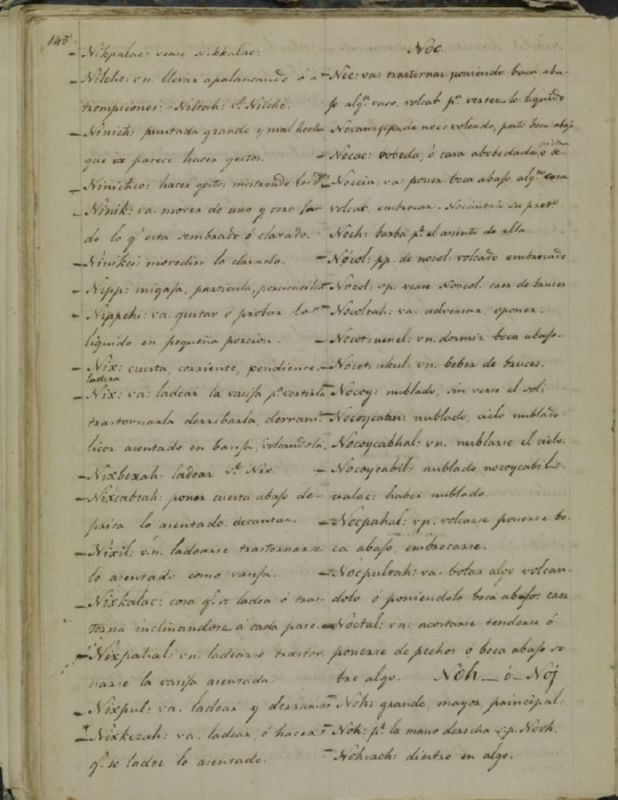 145
- Nikpalac: vease nikkalac:
- Nilche: vn. llevar apalancando ó á
trompicones: - Niltah: vª. Nilche.
- Ninich: puntada grande y mal hecha
que parece hacer gestos.
- Ninichco: hacer gestos mostrando los
- Ninik: va. mover de uno y otro
do lo q.e esta sembrado ó clavado.
- Ninikci: movediso lo clavado.
- Nipp: migaja, particula,
- Nippchi: va. quitar ó probar lo
liquido en pequeña porcion.
- Nix: cuesta, corriente, pendiente.
ladera
- Nix: va: ladear la vasija p.a
trastornarla derribarla,
licor asentado en basija, volcandola,
- Nixbezah: ladear vª. Nix
- Nixcabtah: poner cuesta abajo de
prisa lo asentado. decantar.
- Nixil: vn. ladearse trastornarse
lo asentado como vasija.
- Nixkalac: cosa q.e se ladea ó tras-
torna inclinandose á cada paso.
- Nixpahal: vn. ladearse trastor
narse la vasija asentada.
- Nixpul: va. ladear y derramar
- Nixkezah: va. ladear, ó hacer
q.e se ladee lo asentado.
Noc
- Noc: va: trastornar poniendo boca aba-
jo alg.n vaso, volcar p.a verter lo liquido
de noc: volcado, boca abajo
- Nocac: bobeda, ó casa abobedada,
- Noccin: va: poner boca abajo alg.na cosa
volcar, embrocar. Noccintah su pret.o
- Noch: barba p.r el asiento de ella.
- Nócol: pp. de nocol, volcado embrocado
- Nocol: vp. vease caer de bruces
- Nocltah: va. adversar, oponer.
- Nocotuenel: vn. dormir boca abajo.
- Nocotukul: vn. beber de bruces.
- Nocoy: nublado, sin verse el sol:
- Nocoycaan: nublado, cielo nublado
- Nocoycabhal: vn. nublarse el cielo.
- Nocoycabil: nublado nocoycabil
ualac: haber nublado.
- Nocpahal: vp. volcarse ponerse bo-
ca abajo, embrocarse.
- Nocpultah: va. botar algo volcan-
dolo ó poniendolo boca abajo: caer
- Noctal: vn: acostarse tenderse ó
ponerse de pechos ó boca abajo so-
bre algo. Noh _ ó _ Nój
- Noh: grande, mayor, principal:
- Noh: p.r la mano derecha s.p. Nooh.
- Nohach: diestro en algo.